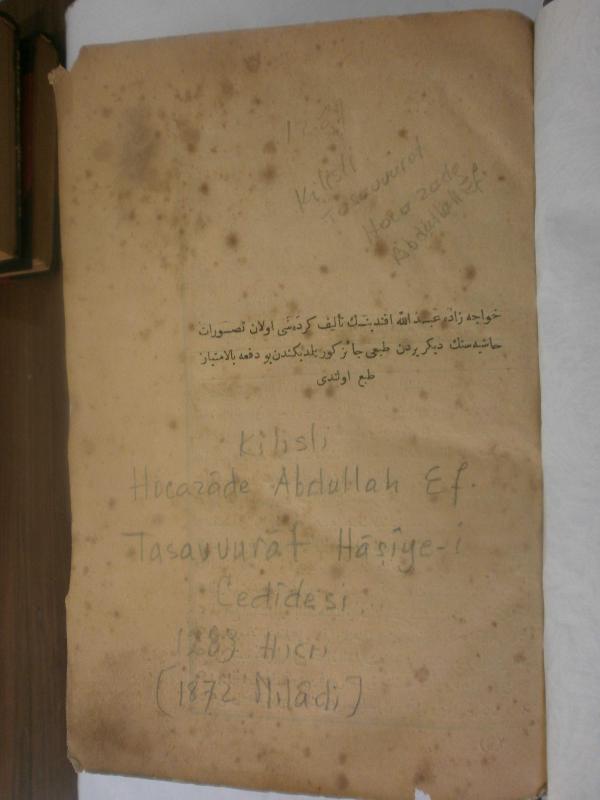 Kilisli
Tasavvurat
Hocazade
Abdullah Ef.
خواجه زاده عبد الله افندينك تأليف كرده سى اولان تصورات
حاشيه سنك ديكر يردن طبعى جائز كورلمديكندن بو دفعه بالامتياز
طبع اولندى
Kilisli
Hocazâde Abdullah Ef.
Tasavvurât Hâşîye-i
Cedîdesi.
1283 Hicri
[1872 Milâdi]